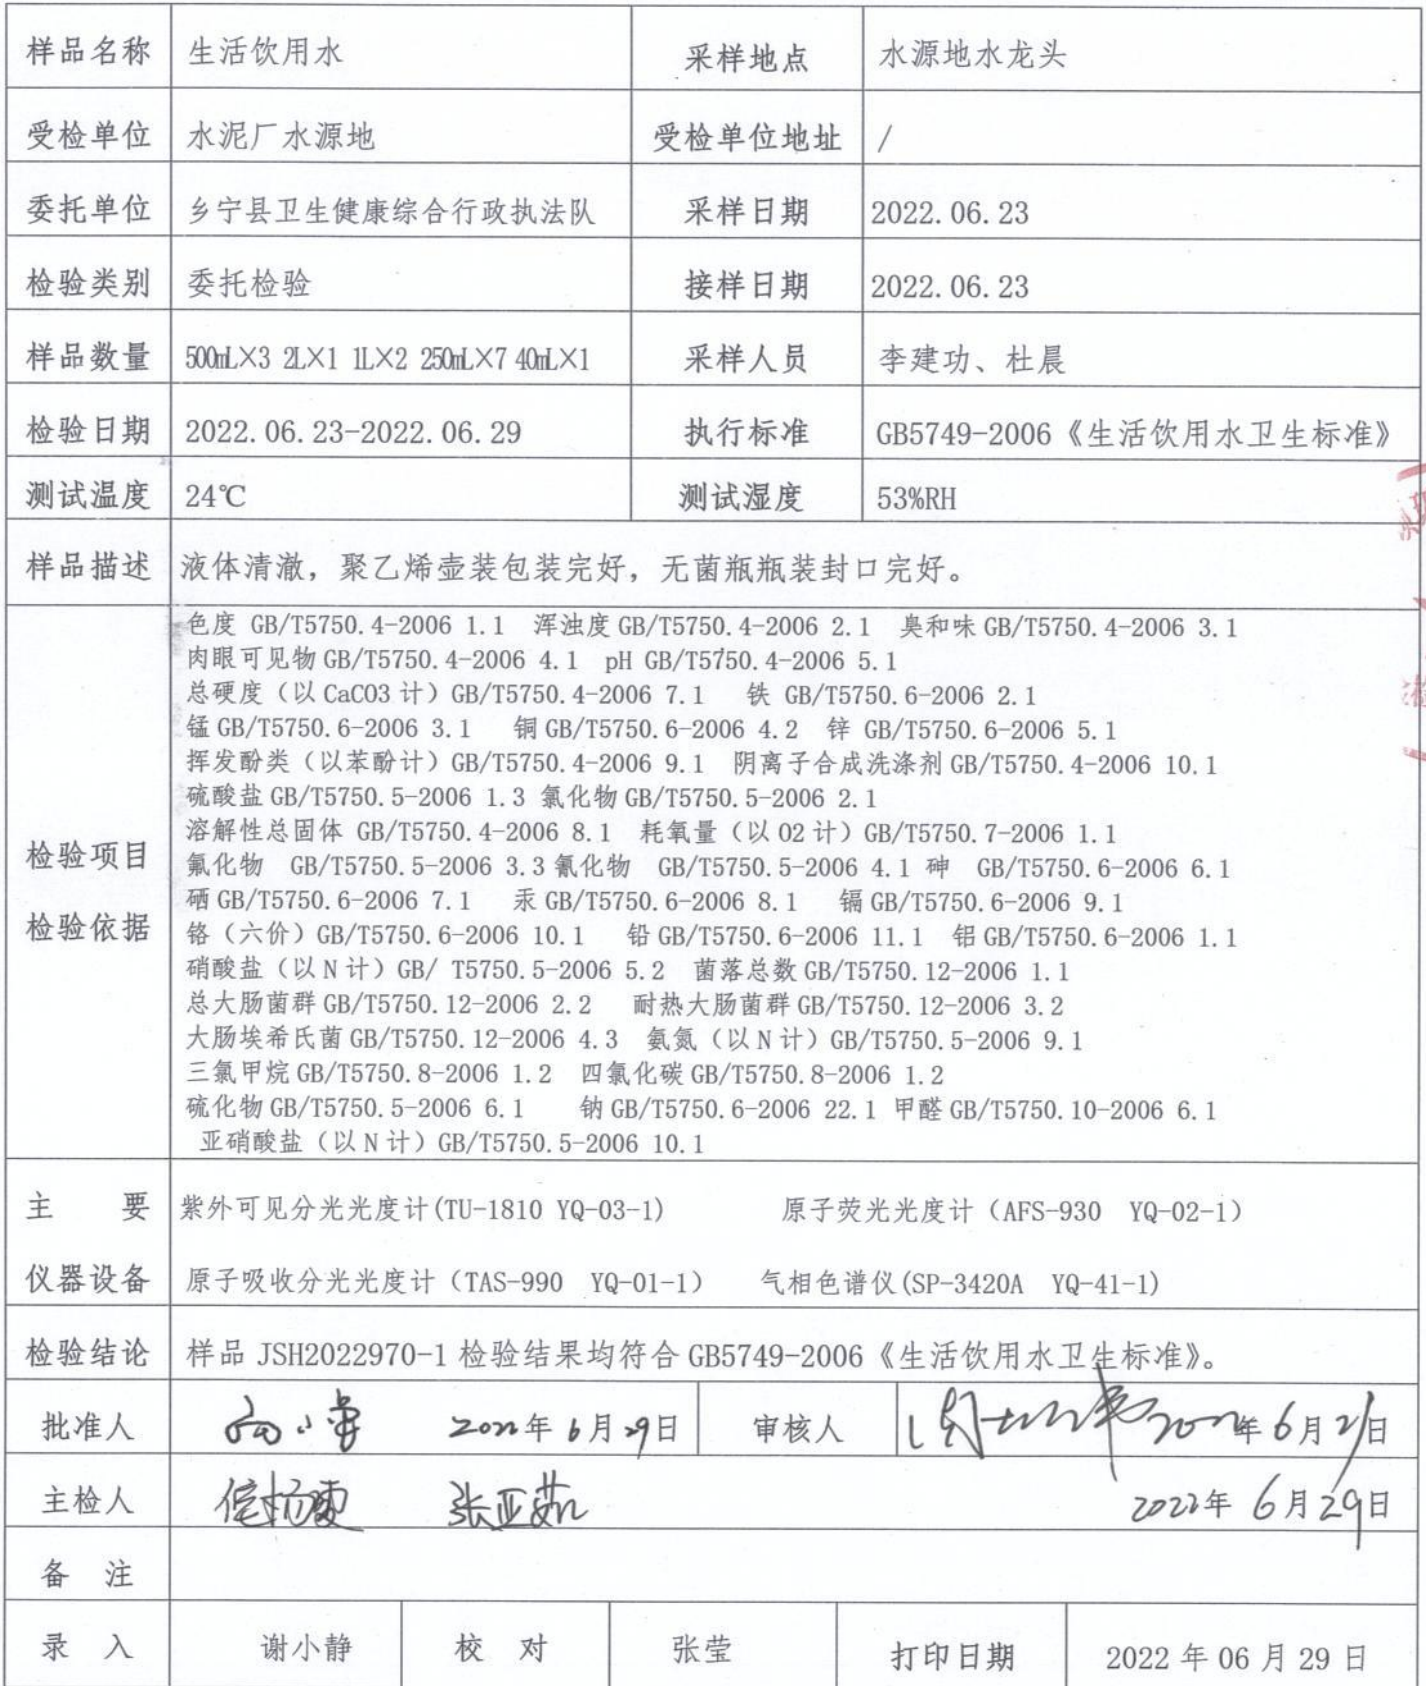 样品名称 生活饮用水 采样地点 水源地水龙头
受检单位 水泥厂水源地 受检单位地址 /
委托单位 乡宁县卫生健康综合行政执法队 采样日期 2022.06.23
检验类别 委托检验 接样日期 2022.06.23
样品数量 500mL×3 2L×1 1L×2 250mL×7 40mL×1 采样人员 李建功、杜晨
检验日期 2022.06.23-2022.06.29 执行标准 GB5749-2006《生活饮用水卫生标准》
测试温度 24℃ 测试湿度 53%RH
样品描述 液体清澈，聚乙烯壶装包装完好，无菌瓶瓶装封口完好。
检验项目
检验依据
色度 GB/T5750.4-2006 1.1 浑浊度 GB/T5750.4-2006 2.1 臭和味 GB/T5750.4-2006 3.1
肉眼可见物 GB/T5750.4-2006 4.1 pH GB/T5750.4-2006 5.1
总硬度（以 CaCO3 计）GB/T5750.4-2006 7.1 铁 GB/T5750.6-2006 2.1
锰 GB/T5750.6-2006 3.1 铜 GB/T5750.6-2006 4.2 锌 GB/T5750.6-2006 5.1
挥发酚类（以苯酚计）GB/T5750.4-2006 9.1 阴离子合成洗涤剂 GB/T5750.4-2006 10.1
硫酸盐 GB/T5750.5-2006 1.3 氯化物 GB/T5750.5-2006 2.1
溶解性总固体 GB/T5750.4-2006 8.1 耗氧量（以 O2 计）GB/T5750.7-2006 1.1
氟化物 GB/T5750.5-2006 3.3 氰化物 GB/T5750.5-2006 4.1 砷 GB/T5750.6-2006 6.1
硒 GB/T5750.6-2006 7.1 汞 GB/T5750.6-2006 8.1 镉 GB/T5750.6-2006 9.1
铬（六价）GB/T5750.6-2006 10.1 铅 GB/T5750.6-2006 11.1 铝 GB/T5750.6-2006 1.1
硝酸盐（以 N 计）GB/ T5750.5-2006 5.2 菌落总数 GB/T5750.12-2006 1.1
总大肠菌群 GB/T5750.12-2006 2.2 耐热大肠菌群 GB/T5750.12-2006 3.2
大肠埃希氏菌 GB/T5750.12-2006 4.3 氨氮（以 N 计）GB/T5750.5-2006 9.1
三氯甲烷 GB/T5750.8-2006 1.2 四氯化碳 GB/T5750.8-2006 1.2
硫化物 GB/T5750.5-2006 6.1 钠 GB/T5750.6-2006 22.1 甲醛 GB/T5750.10-2006 6.1
亚硝酸盐（以 N 计）GB/T5750.5-2006 10.1
主 要 紫外可见分光光度计(TU-1810 YQ-03-1) 原子荧光光度计（AFS-930 YQ-02-1）
仪器设备 原子吸收分光光度计（TAS-990 YQ-01-1） 气相色谱仪(SP-3420A YQ-41-1)
检验结论 样品 JSH2022970-1 检验结果均符合 GB5749-2006《生活饮用水卫生标准》。
批准人 2022年 6月 29日 审核人 2022年 6月 日
主检人 张亚茹 2022年 6月 29日
备 注
录 入 谢小静 校 对 张莹 打印日期 2022 年 06 月 29 日